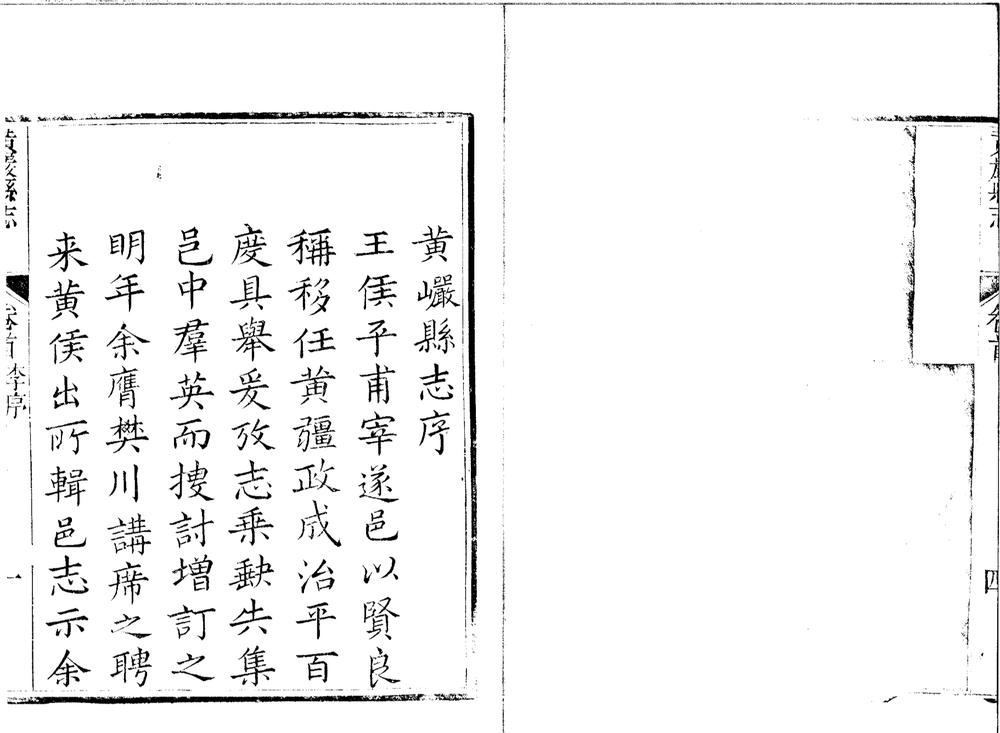 四
黄巖縣志序
王侯子甫宰遂邑以賢良
稱移任黄疆政成治平百
度具舉爰攷志乘缺失集
邑中羣英而摉討增訂之
明年余膺樊川講席之聘
来黄侯出所輯邑志示余
黄巖縣志
卷首
李序
一